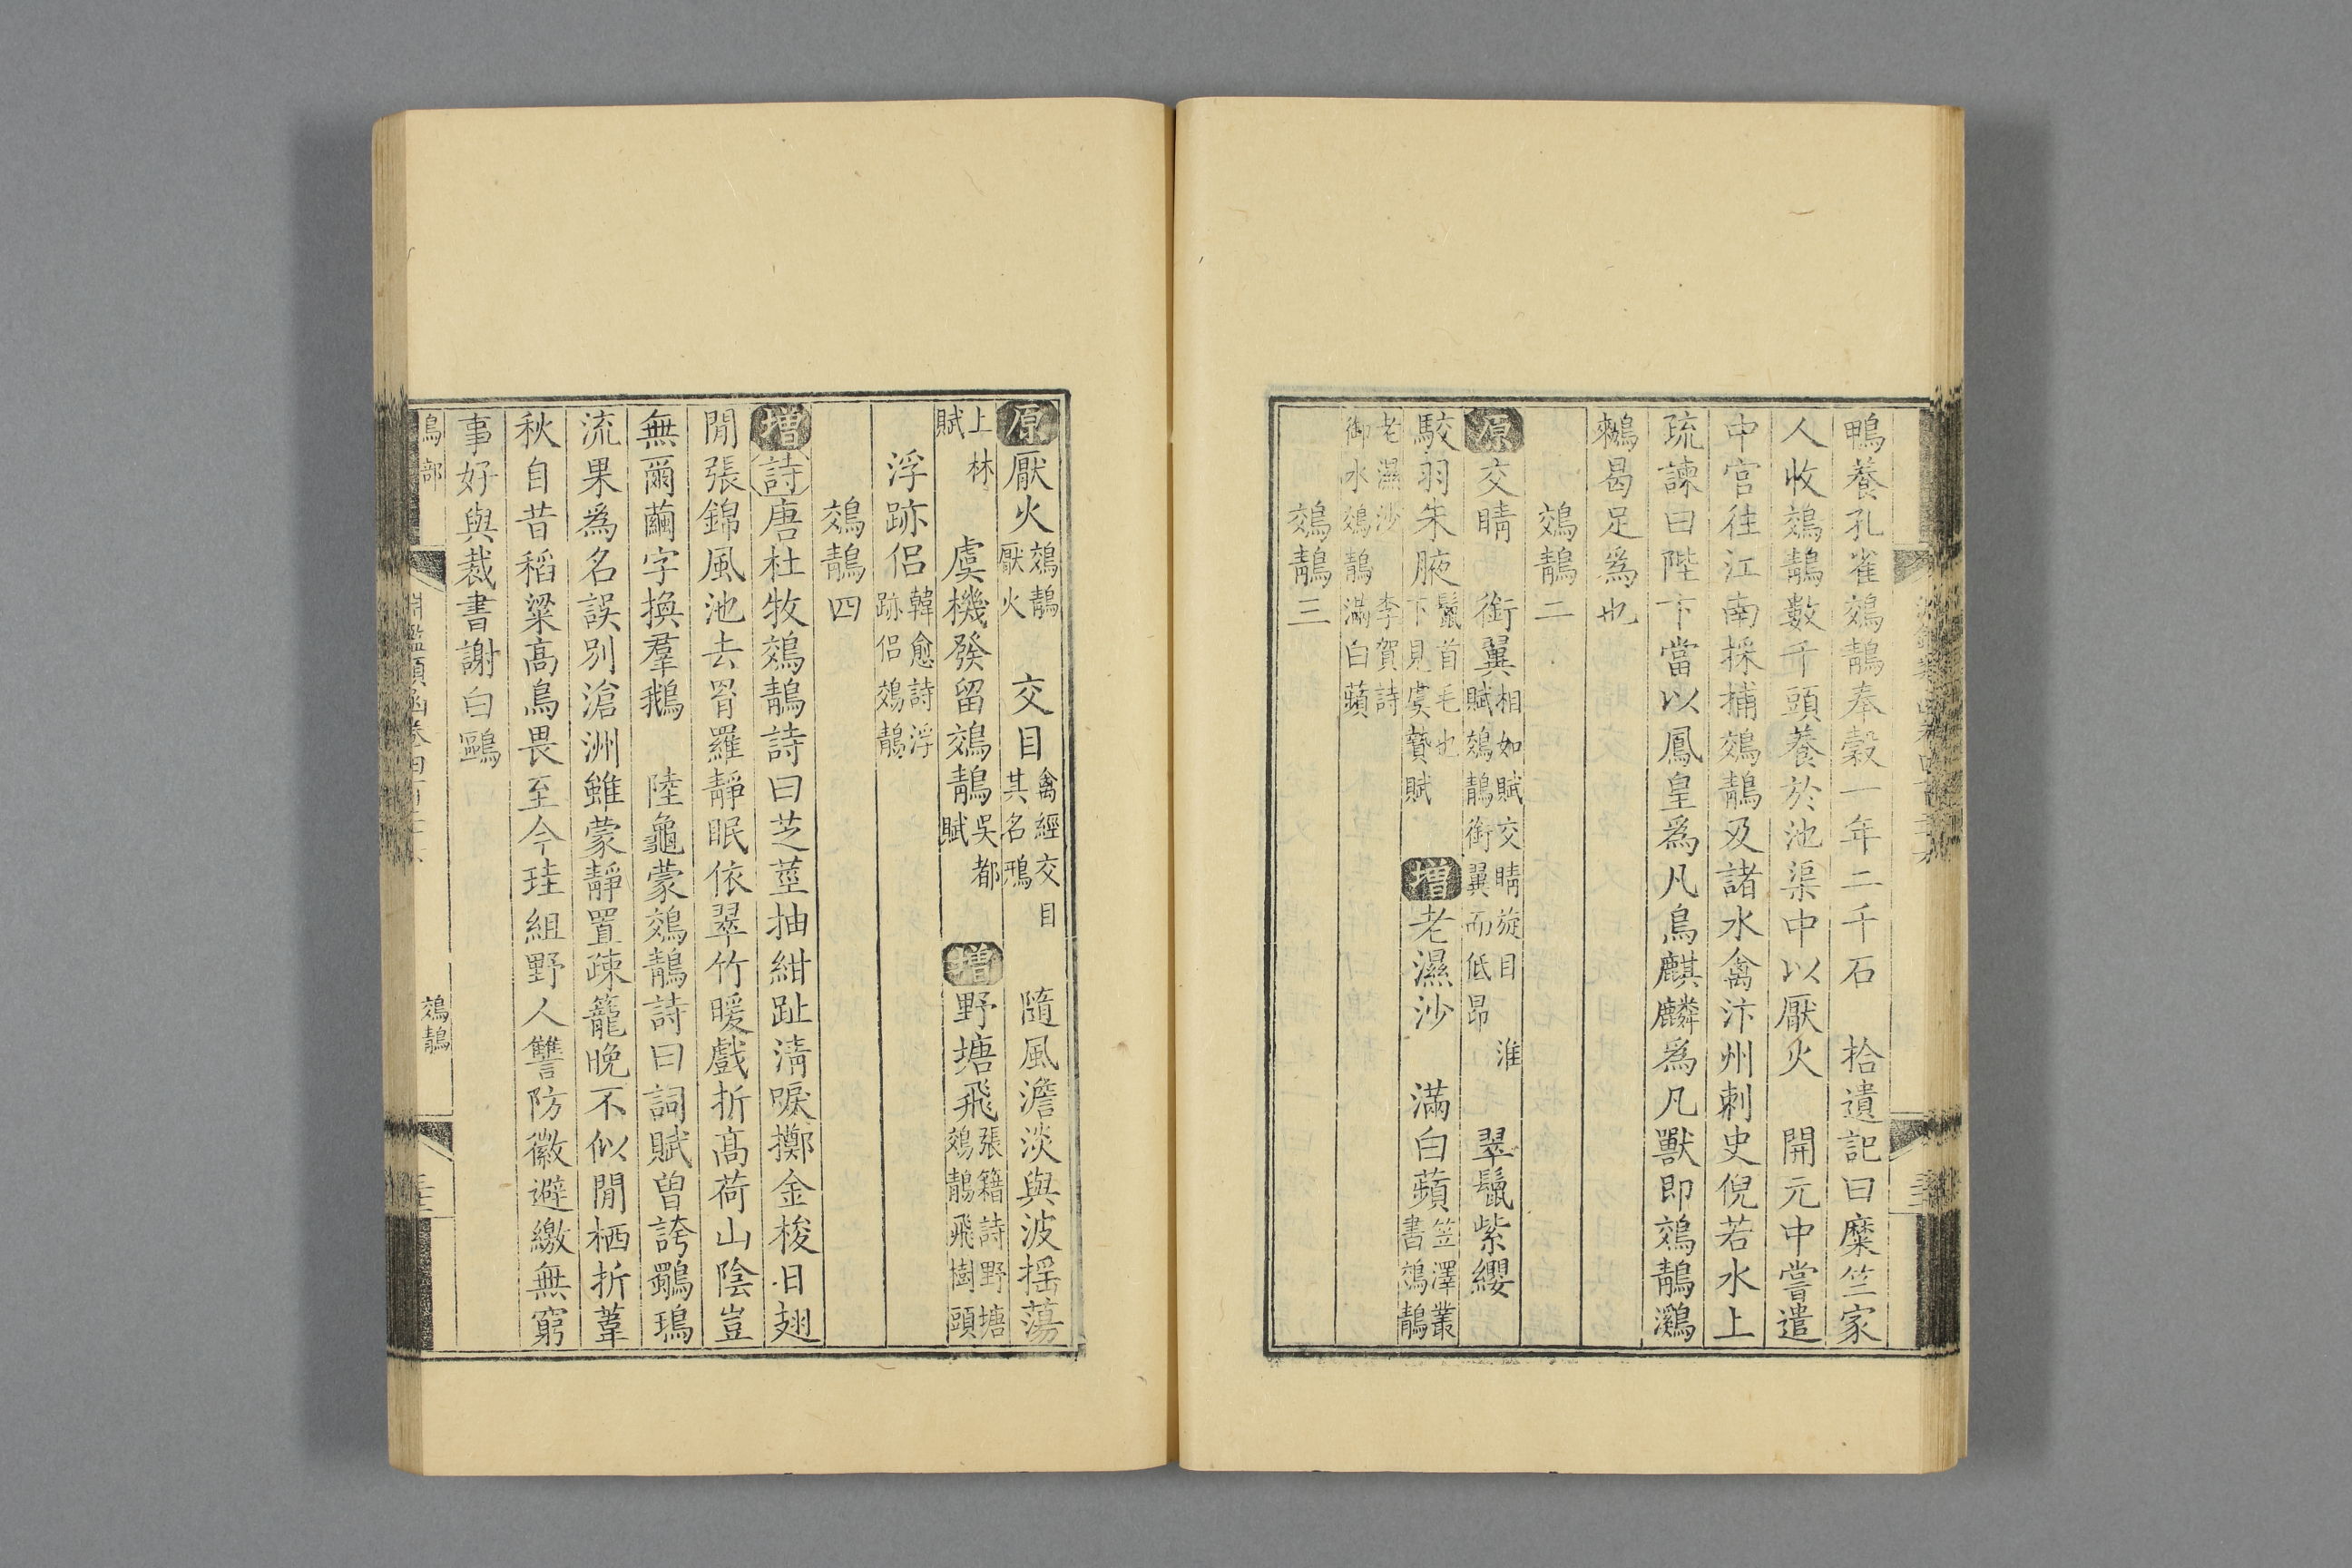 鴨養孔雀鵁鶄奉穀一年二千石　拾遺記曰糜竺家
人收鵁鶄數千頭養於池渠中以厭火　開元中嘗遣
中官往江南採捕鵁鶄及諸水禽汴州刺史倪若水上
疏諫曰陛下當以鳳皇為凡鳥麒麟為凡獸即鵁鶄鸂
鶒曷足為也
鵁鶄二
原交睛　銜翼相如賦交睛旋目　淮賦鵁鶄銜翼而低昂　翠鬣紫纓
駮羽朱腋鬣首毛也下見虞贄賦　增老濕沙　滿白蘋笠澤叢書鵁鶄
老濕沙　李賀詩御水鵁鶄滿白蘋
鵁鶄三
原厭火鵁鶄厭火　交目禽經交目其名鳽　隨風澹淡與波揺蕩
上林賦　虞機發留鵁鶄吳都賦　增野塘飛張籍詩野塘鵁鶄飛樹頭
浮跡侶韓愈詩浮跡侶鵁鶄
鵁鶄四
增詩唐杜牧鵁鶄詩曰芝莖抽紺趾淸唳擲金梭日翅
閒張錦風池去罥羅靜眠依翠竹暖戲折高荷山陰豈
無爾繭字換羣鵝　陸龜蒙鵁鶄詩曰詞賦曾誇鸀鳿
流果為名誤别滄洲雖蒙靜置疎籠晚不似閒栖折葦
秋自昔稻粱高鳥畏至今珪組野人讐防徽避繳無窮
事好與裁書謝白鷗
鳥部
鵁鶄